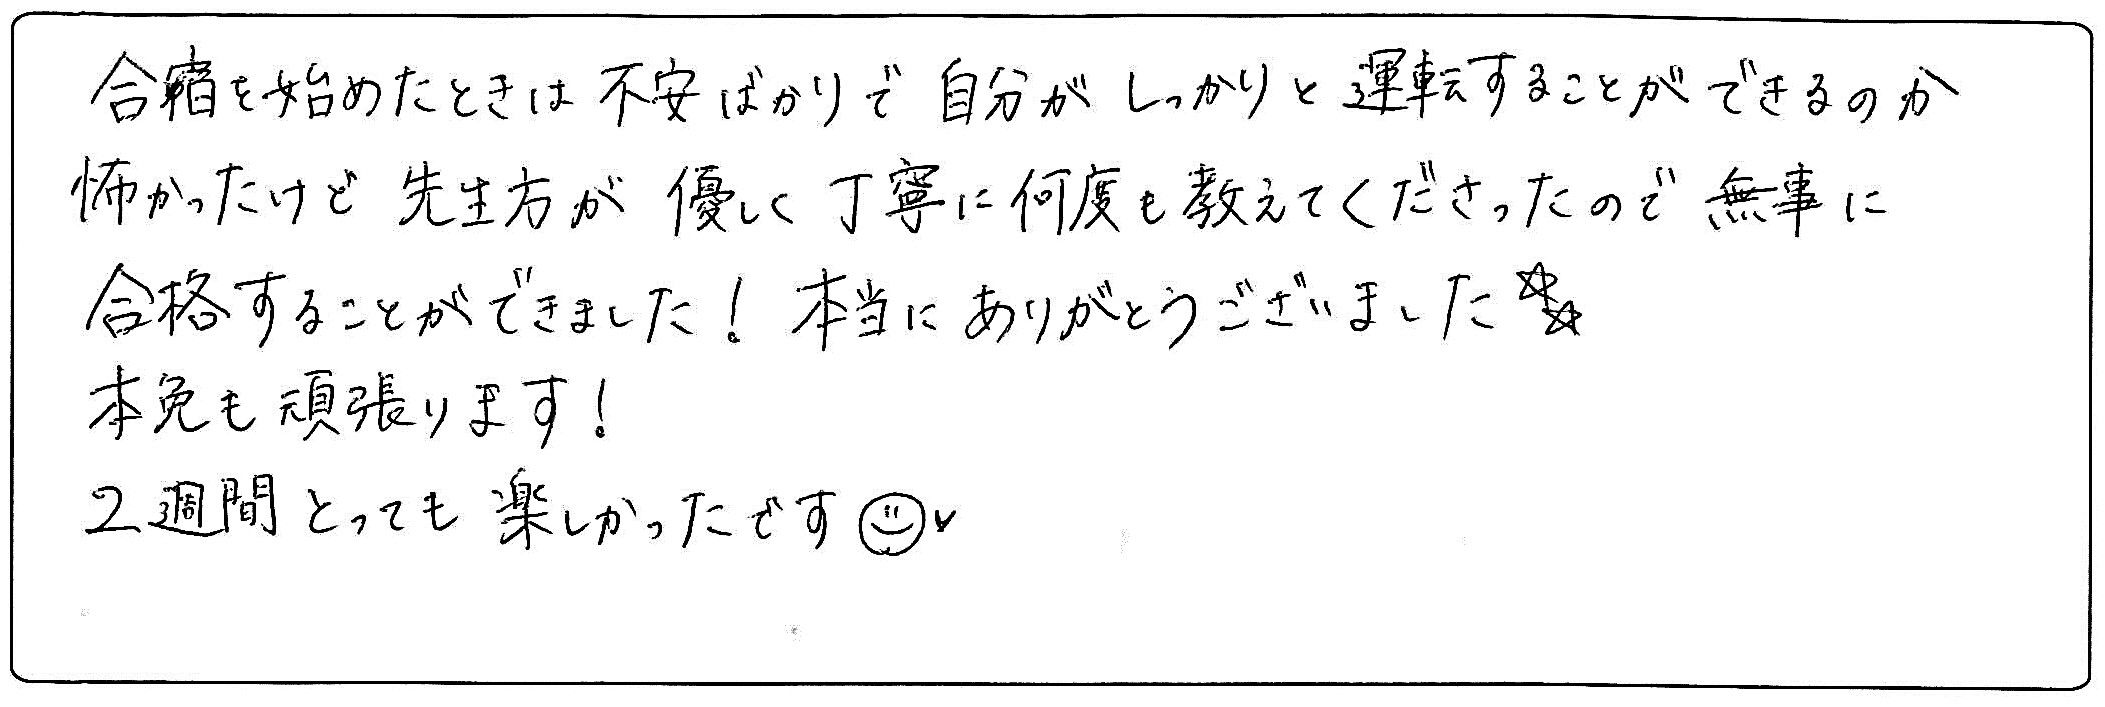 合宿を始めたときは不安ばかりで自分がしっかりと運転することができるのか
怖かったけど先生方が優しく丁寧に何度も教えてくださったので無事に
合格することができました！本当にありがとうございました☆☆
本免も頑張ります！
2週間とっても楽しかったです☺♥